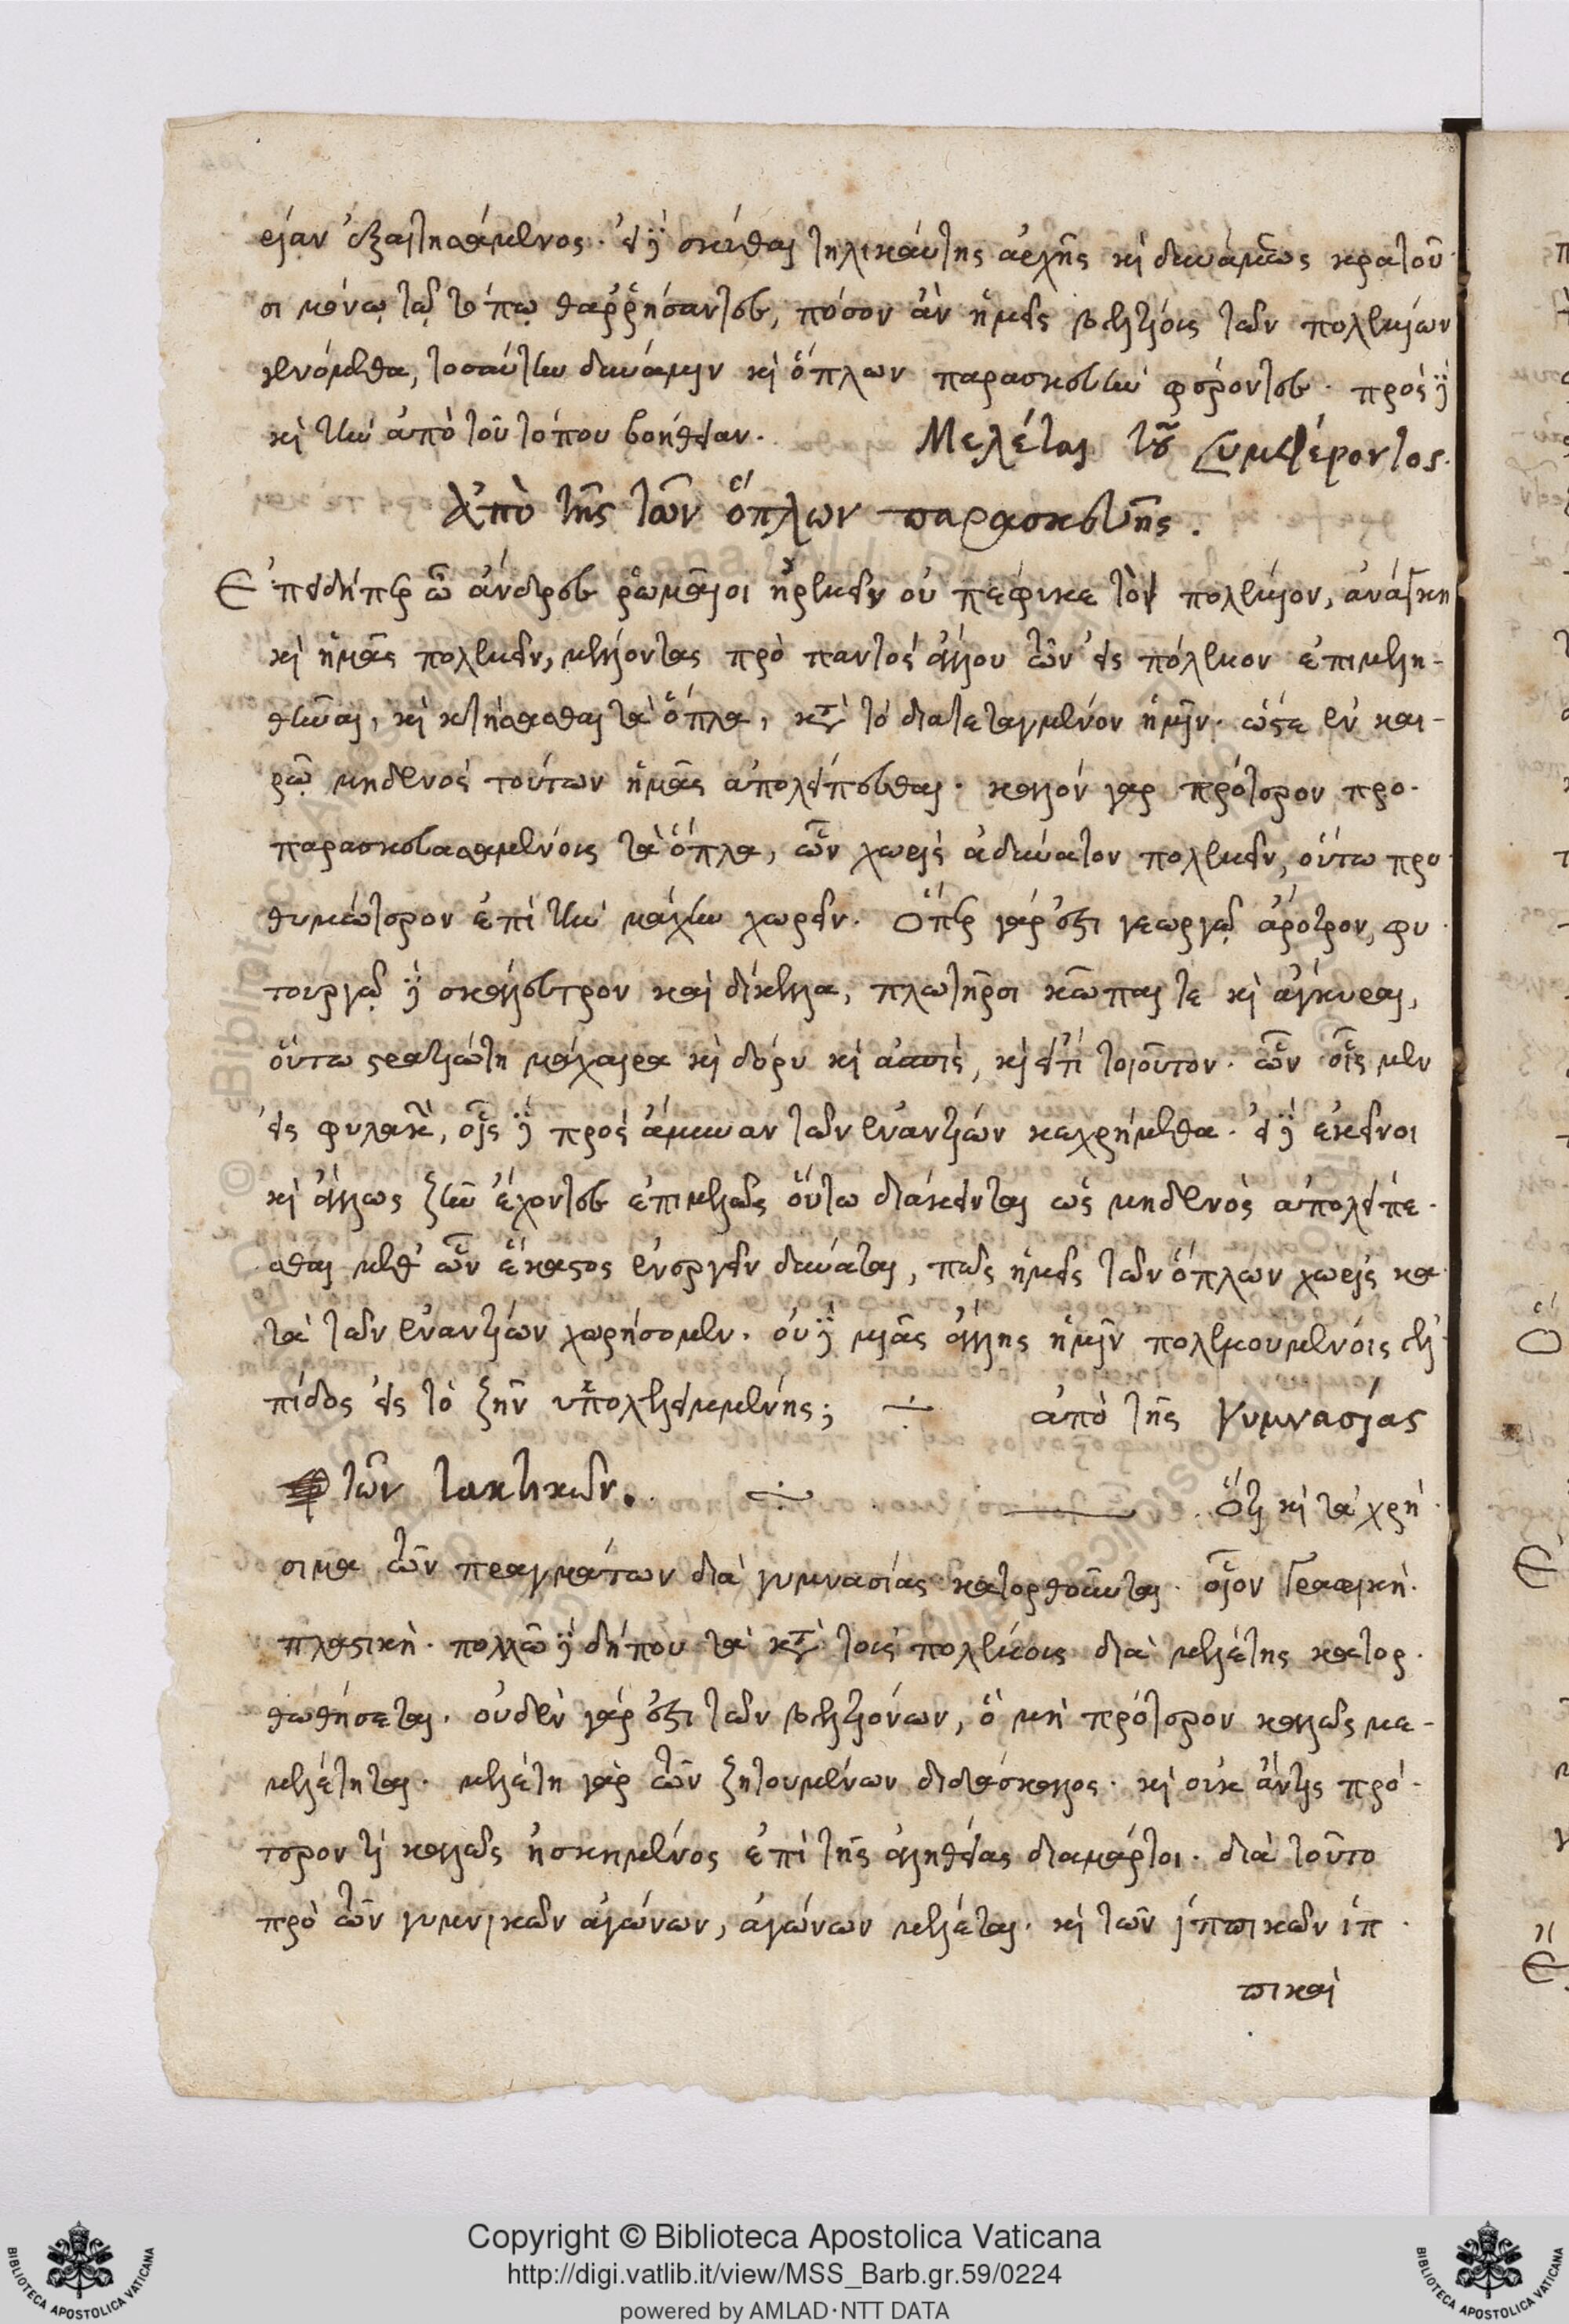 ρίαν ἐξαιτησάμενος. εἰ δὲ σκύθαι τηλικαύτης ἀρχῆς καὶ δυνάμεως κρατοῦ-
σι μόνῳ τῷ τόπῳ θαῤῥήσαντες, πόσον ἂν ἡμεῖς βελτίους τῶν πολεμίων
γενόμεθα, τοσαύτην δύναμιν καὶ ὅπλων παρασκευὴν φέροντες. πρὸς δὲ
καὶ τὴν ἀπὸ τοῦ τόπου βοήθειαν. Μελέται τοῦ Συμφέροντος.
Ἀπὸ τῆς τῶν ὅπλων παρασκευῆς.
Ἐπειδήπερ ὦ ἄνδρες ῥωμαῖοι ἠρεμεῖν οὐ πέφυκε τὸν πολέμιον, ἀνάγκη
καὶ ἡμᾶς πολεμεῖν, μέλλοντας πρὸ παντὸς ἄλλου τῶν εἰς πόλεμον ἐπιμελη-
θῆναι, καὶ κτήσασθαι τὰ ὅπλα, κατὰ τὸ διατεταγμένον ἡμῖν. ὥστε ἐν και-
ρῷ μηδενὸς τούτων ἡμᾶς ἀπολείπεσθαι. καλὸν γὰρ πρότερον προ-
παρασκευασαμένοις τὰ ὅπλα, ὧν χωρὶς ἀδύνατον πολεμεῖν, οὕτω προ-
θυμότερον ἐπὶ τὴν μάχην χωρεῖν. Ὅπερ γάρ ἐστι γεωργῷ ἄροτρον, φυ-
τουργῷ δὲ σκαλευτρον καὶ δίκελλα, πλωτῆρσι κῶπαι τε καὶ ἄγκυραι,
οὕτω στρατιώτῃ μάχαιρα καὶ δόρυ καὶ ἀσπὶς, καὶ εἴ τι τοιοῦτον. ὧν οἷς μὲν
εἰς φυλακὴν, οἷς δὲ πρὸς ἄμυναν τῶν ἐναντίων κεχρήμεθα. εἰ δὲ ἐκεῖνοι
καὶ ἄλλως ζῆν ἔχοντες ἐπιμελῶς οὕτω διάκεινται ὡς μηδενὸς ἀπολείπε-
σθαι μεθ' ὧν ἕκαστος ἐνεργεῖν δύναται, πῶς ἡμεῖς τῶν ὅπλων χωρὶς κα-
τὰ τῶν ἐναντίων χωρήσομεν. οὐ δὲ μιᾶς ἄλλης ἡμῖν πολεμουμένοις ἐλ-
πίδος εἰς τὸ ζῆν ὑπολελειμμένης; ἀπὸ τῆς γυμνασίας
τῶν τακτικῶν. Ὅτι καὶ τὰ χρή-
σιμα τῶν πραγμάτων διὰ γυμνασίας κατορθοῦνται. οἷον γραφικὴ.
πλαστικὴ. πολλῷ δὲ δήπου τὰ κατὰ τοὺς πολέμους διὰ μελέτης κατορ-
θωθήσεται. οὐδὲν γάρ ἐστι τῶν βελτιόνων, ὃ μὴ πρότερον καλῶς με-
μελέτηται. μελέτη γὰρ τῶν ζητουμένων διδάσκαλος. καὶ οὐκ ἄν τις πρό-
τερόν τι καλῶς ἠσκημένος ἐπὶ τῆς ἀληθείας διαμάρτοι. διὰ τοῦτο
πρὸ τῶν γυμνικῶν ἀγώνων, ἀγώνων μελέται. καὶ τῶν ἱππικῶν ἱπ-
πικαὶ
Copyright © Biblioteca Apostolica Vaticana
http://digi.vatlib.it/view/MSS_Barb.gr.59/0224
powered by AMLAD·NTT DATA
BIBLIOTECA APOSTOLICA VATICANA
BIBLIOTECA APOSTOLICA VATICANA